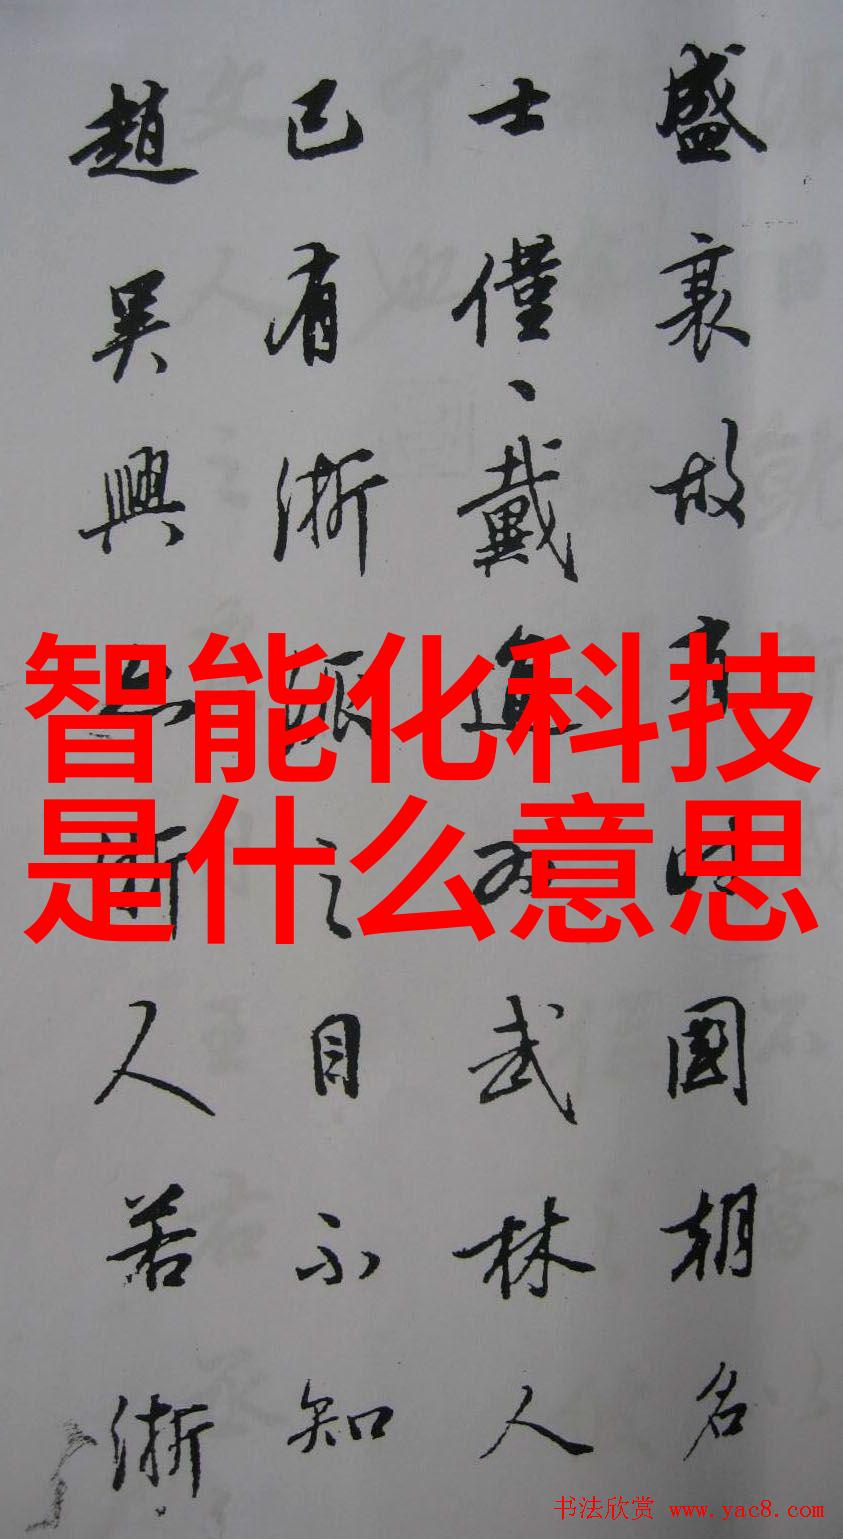 盛衰故有时國朝名
士僅、戴進为武林人
已有浙派之目不知
趙吴興亦浙人若浙
智能化科技
是什么意思
书法欣赏 www.yac8.com